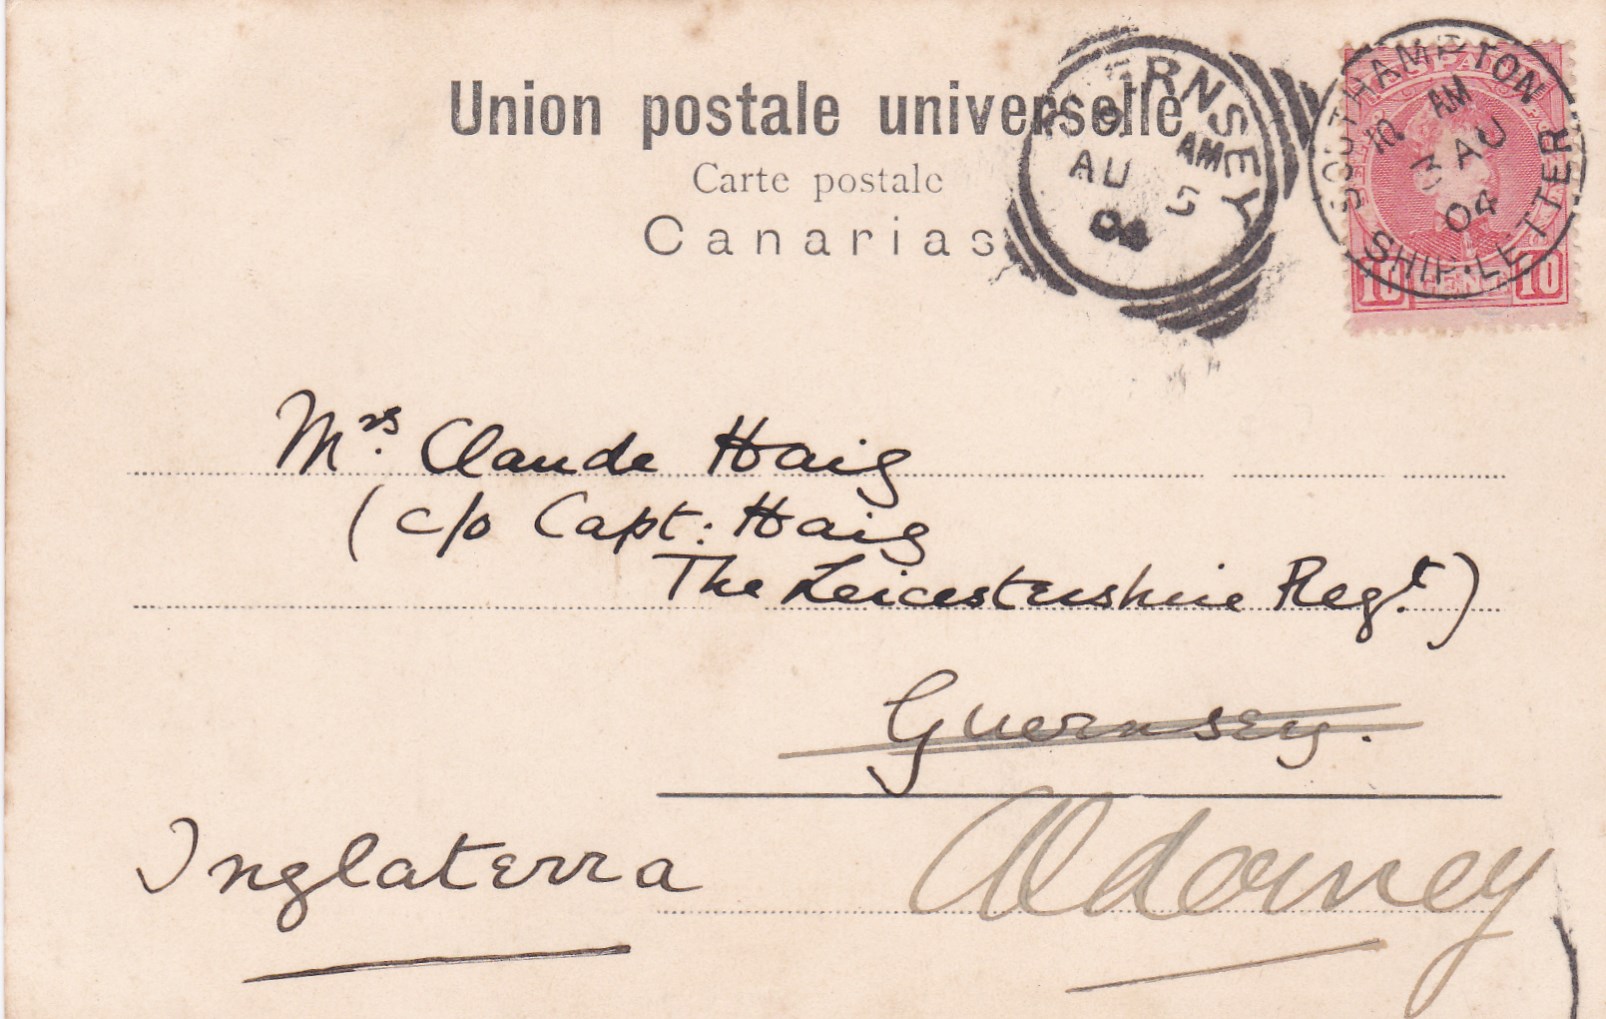 Union postale universelle
Carte postale
Canarias
GUERNSEY
9 AM
AU 5
04
SOUTHAMPTON
10 AM
3 AU
04
SHIP-LETTER
10 10
Mrs. Claude Haig
(c/o Capt: Haig
The Leicestershire Regt.)
Guernsey.
Inglaterra
Alderney